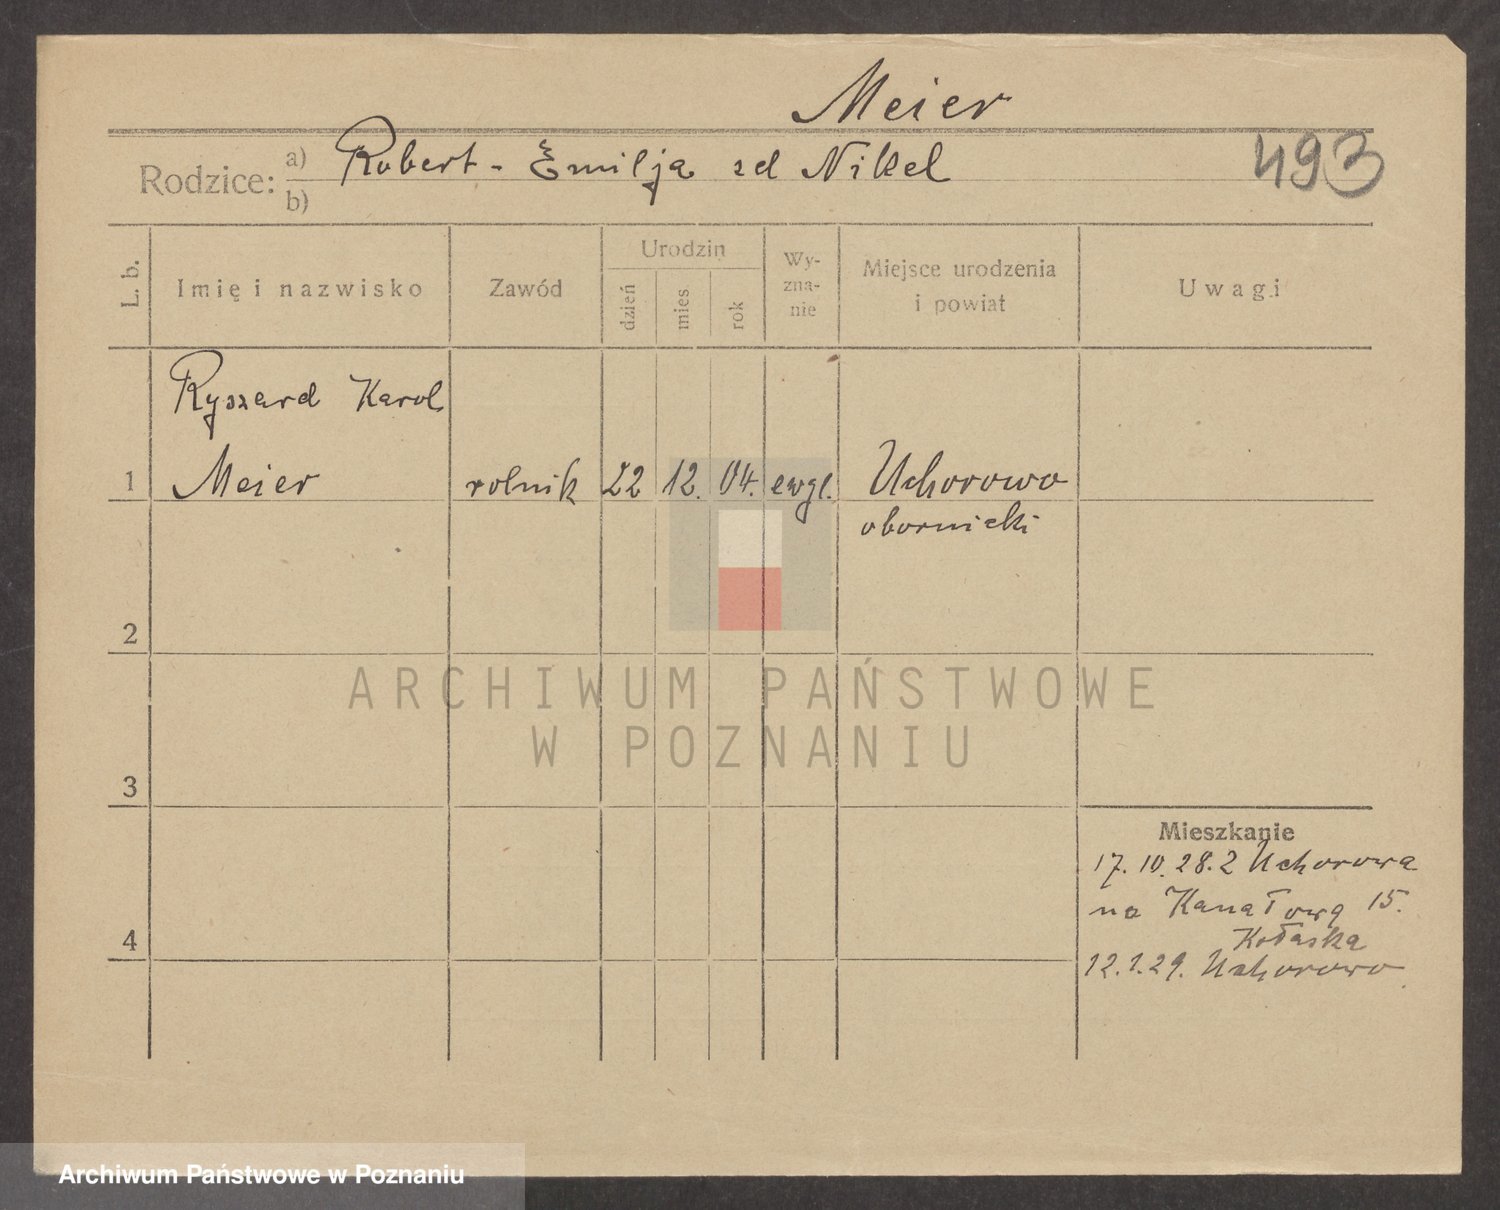 Meier
Rodzice: a) Robert - Emilja zd Nikel
b)
493
L. b.
Imię i nazwisko
Zawód
Urodzin
dzień
mies
rok
Wy-
zna-
nie
Miejsce urodzenia
i powiat
Uwagi
Ryszard Karol
1 Meier rolnik 22 12. 04. ewgl. Uchorowo
obornicki
2
3
Mieszkanie
17. 10. 28. z Uchorowa
na Kanałową 15.
Kołaska
4
12. 1. 29. Uchorowo
ARCHIWUM PAŃSTWOWE
W POZNANIU
Archiwum Państwowe w Poznaniu